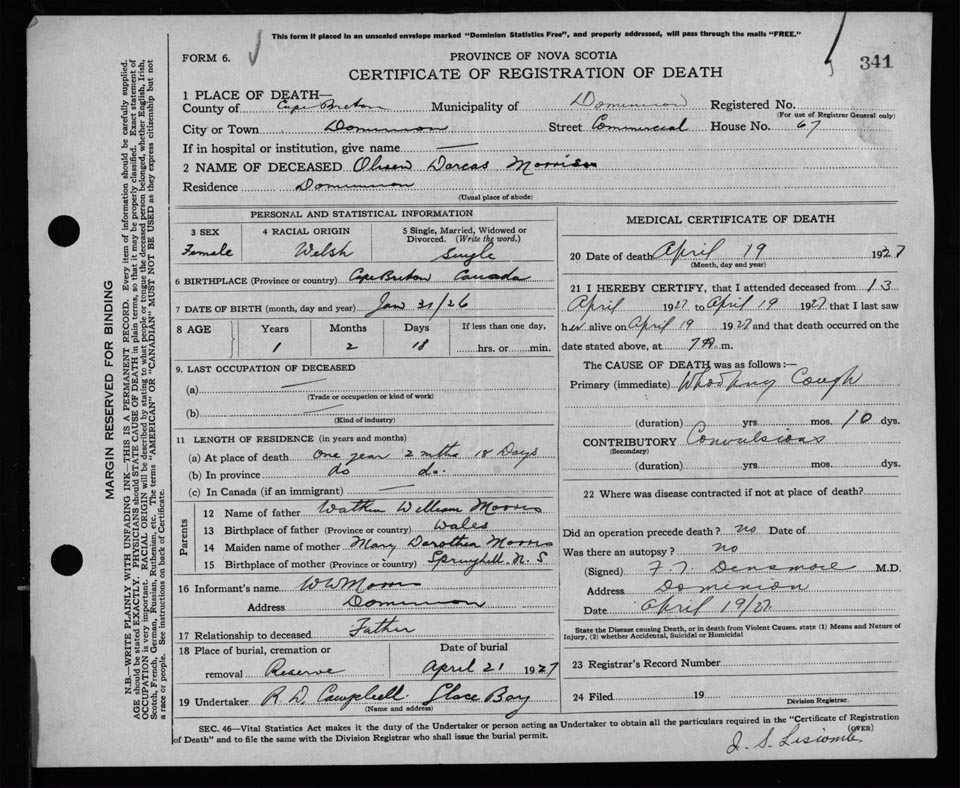 This form if placed in an unsealed envelope marked "Dominion Statistics Free", and properly addressed, will pass through the mails "FREE."
FORM 6.
PROVINCE OF NOVA SCOTIA
341
CERTIFICATE OF REGISTRATION OF DEATH
1 PLACE OF DEATH—
County of Cape Breton Municipality of Dominion Registered No.
(For use of Registrar General only)
City or Town Dominion Street Commercial House No. 67
If in hospital or institution, give name —
2 NAME OF DECEASED Dorcas
Residence Dominion
(Usual place of abode)
PERSONAL AND STATISTICAL INFORMATION
3 SEX Female
4 RACIAL ORIGIN Welsh
5 Single, Married, Widowed or Divorced. (Write the word.) Single
6 BIRTHPLACE (Province or country) Cape Breton Canada
7 DATE OF BIRTH (month, day and year) Jan 31/26
8 AGE Years Months Days If less than one day,
1 2 18 hrs. or min.
9. LAST OCCUPATION OF DECEASED
(a) —
(Trade or occupation or kind of work)
(b) —
(Kind of industry)
11 LENGTH OF RESIDENCE (in years and months)
(a) At place of death one year 2 mths 18 Days
(b) In province do do.
(c) In Canada (if an immigrant) —
Parents
12 Name of father William Morris
13 Birthplace of father (Province or country) Wales
14 Maiden name of mother Mary Dorothea Morris
15 Birthplace of mother (Province or country) Springhill N. S
16 Informant's name W W Morris
Address Dominion
17 Relationship to deceased Father
18 Place of burial, cremation or removal Reserve
Date of burial April 21 1927
19 Undertaker R. D. Campbell. Glace Bay
(Name and address)
MEDICAL CERTIFICATE OF DEATH
20 Date of death April 19 1927
(Month, day and year)
21 I HEREBY CERTIFY, that I attended deceased from 13
April 1927 to April 19 1927 that I last saw
her alive on April 19 1927 and that death occurred on the
date stated above, at 7 m.
The CAUSE OF DEATH was as follows:—
Primary (immediate) Whooping Cough
(duration) yrs. mos. 10 dys.
CONTRIBUTORY Convulsions
(Secondary)
(duration) yrs. mos. dys.
22 Where was disease contracted if not at place of death?
Did an operation precede death? no Date of
Was there an autopsy? no
(Signed) Densmore M.D.
Address Dominion
Date April 19/27
State the Disease causing Death, or in death from Violent Causes, state (1) Means and Nature of
Injury, (2) whether Accidental, Suicidal or Homicidal
23 Registrar's Record Number
24 Filed 19
Division Registrar.
SEC. 46—Vital Statistics Act makes it the duty of the Undertaker or person acting as Undertaker to obtain all the particulars required in the "Certificate of Registration
of Death" and to file the same with the Division Registrar who shall issue the burial permit.
(OVER)
MARGIN RESERVED FOR BINDING
N.B.—WRITE PLAINLY WITH UNFADING INK—THIS IS A PERMANENT RECORD. Every item of information should be carefully supplied.
AGE should be stated EXACTLY. PHYSICIANS should STATE CAUSE OF DEATH in plain terms, so that it may be properly classified. Exact statement of
OCCUPATION is very important. RACIAL ORIGIN will be described by stating to what people or tongue the deceased person belonged, whether English, Irish,
Scotch, French, German, Russian, Ruthenian, etc. The terms "AMERICAN" OR "CANADIAN" MUST NOT BE USED as they express citizenship but not
a race or people. See instructions on back of Certificate.